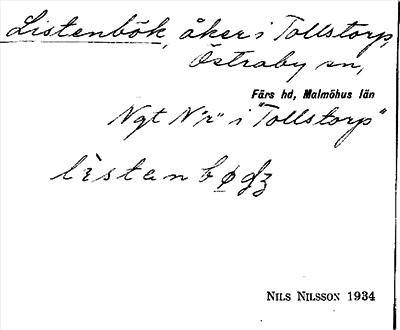 Listenbök, åker i Tollstorp,
Östraby sn,
Färs hd, Malmöhus län
Ngt N"r" i "Tollstorp"
lìstanbøgʒ
NILS NILSSON 1934